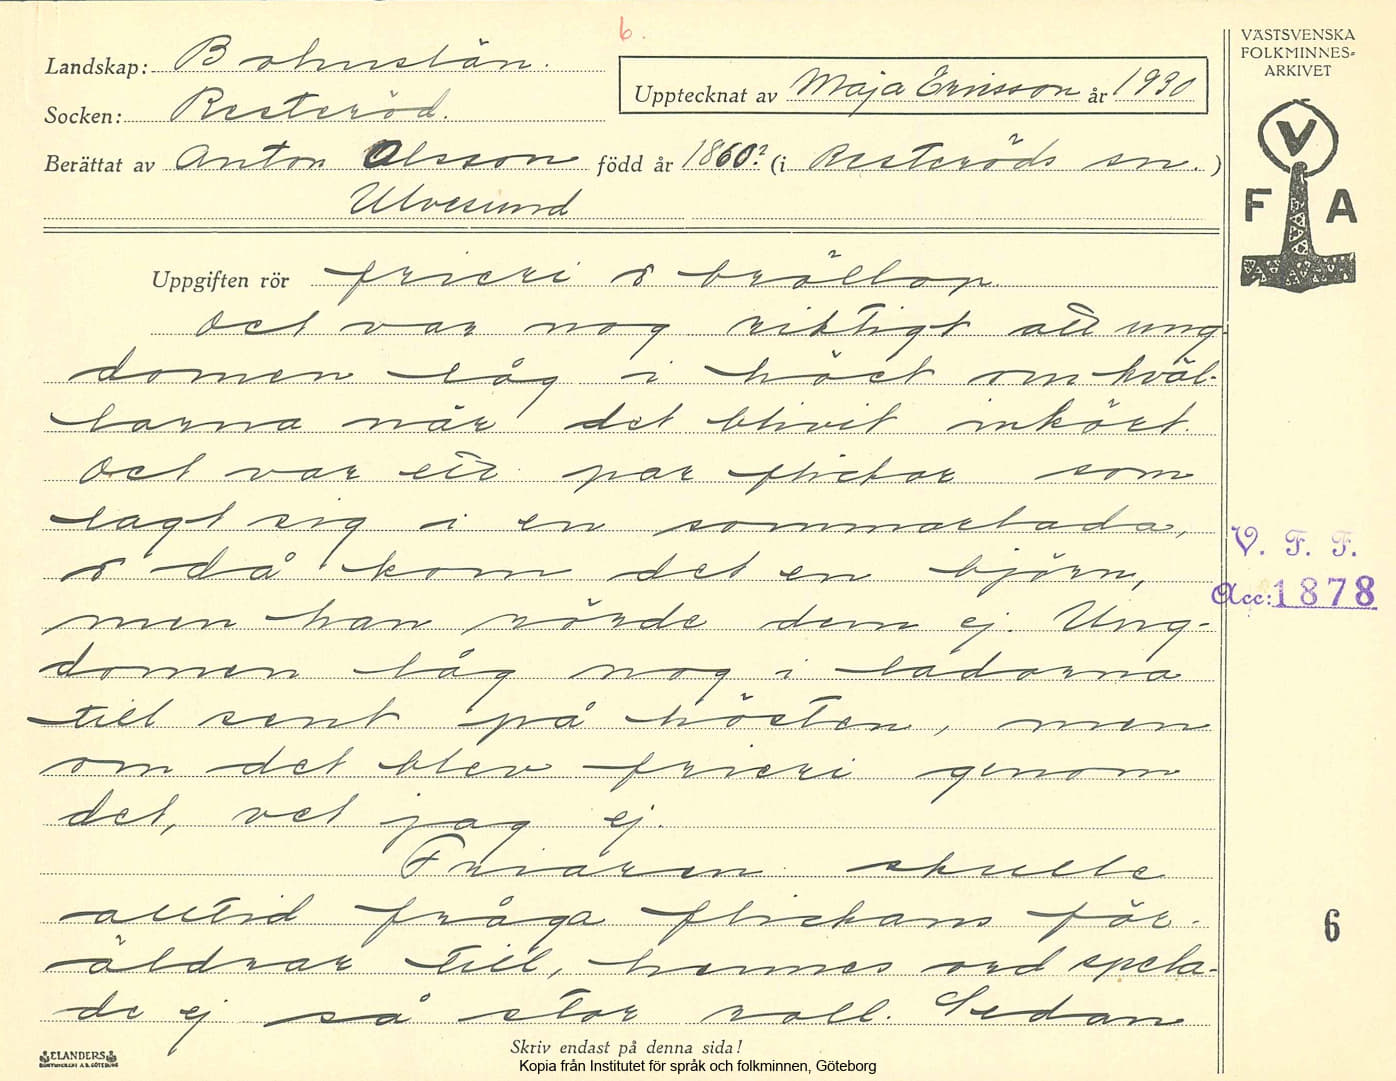 6.
VÄSTSVENSKA
FOLKMINNES=
ARKIVET
Landskap: Bohuslän.
Upptecknat av Maja Ericsson år 1930
Socken: Resteröd.
Berättat av Anton Olsson född år 1860? (i Resteröds sn.)
Ulvesund
V
F A
Uppgiften rör frieri o bröllop.
Det var nog riktigt att ung
domen låg i höet om kväl-
larna när det blivit inkört.
Det var ett par flickor som
lagt sig i en sommarlada,
o då kom det en björn,
men han rörde dem ej. Ung-
domen låg nog i ladorna
till sent på hösten, men
om det blev frieri genom
det, vet jag ej.
Friaren skulle
alltid fråga flickans för-
äldrar till, hennes ord spela-
de ej så stor roll. Sedan
V. F. F.
Acc: 1878
6
Skriv endast på denna sida!
ELANDERS
BOKTRYCKERI A.B. GÖTEBORG
Kopia från Institutet för språk och folkminnen, Göteborg